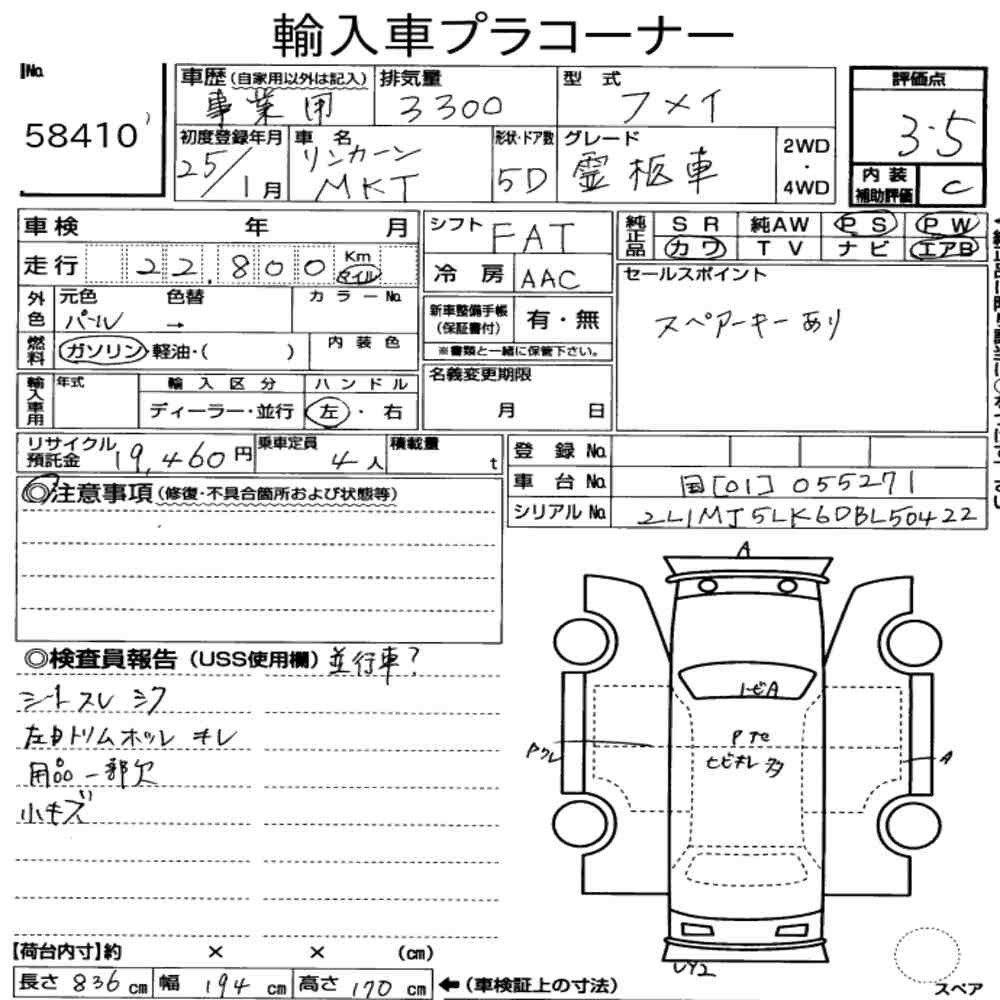 輸入車プラコーナー
No. 58410
車歴(自家用以外は記入) 事業用
排気量 3300
型式 フメイ
評価点 3.5
初度登録年月 25/1月
車名 リンカーン MKT
形状・ドア数 5D
グレード 霊柩車
2WD・4WD
内装補助評価 C
車検 年 月
シフト FAT
純正品 SR 純AW PS PW
カワ TV ナビ エアB
走行 22,800 Km マイル
冷房 AAC
セールスポイント
スペアーキーあり
外色 元色 パール → 色替 カラーNo.
新車整備手帳(保証書付) 有・無
※書類と一緒に保管下さい。
燃料 ガソリン・軽油・( ) 内装色
名義変更期限 月 日
輸入車用 年式 輸入区分 ディーラー・並行 ハンドル 左・右
リサイクル預託金 19,460円 乗車定員 4人 積載量 t
登録No.
車台No. 国[01]055271
シリアルNo. 2L1MJ5LK6DBL50422
◎注意事項(修復・不具合箇所および状態等)
◎検査員報告(USS使用欄) 並行車?
シートスレ シワ
左Dトリムホツレ キレ
用品一部欠
小キズ
A
トビA
Pクレ
ヒビキレ多
A
UY2
スペア
【荷台内寸】約 × × (cm)
長さ 836 cm 幅 194 cm 高さ 170 cm ←(車検証上の寸法)